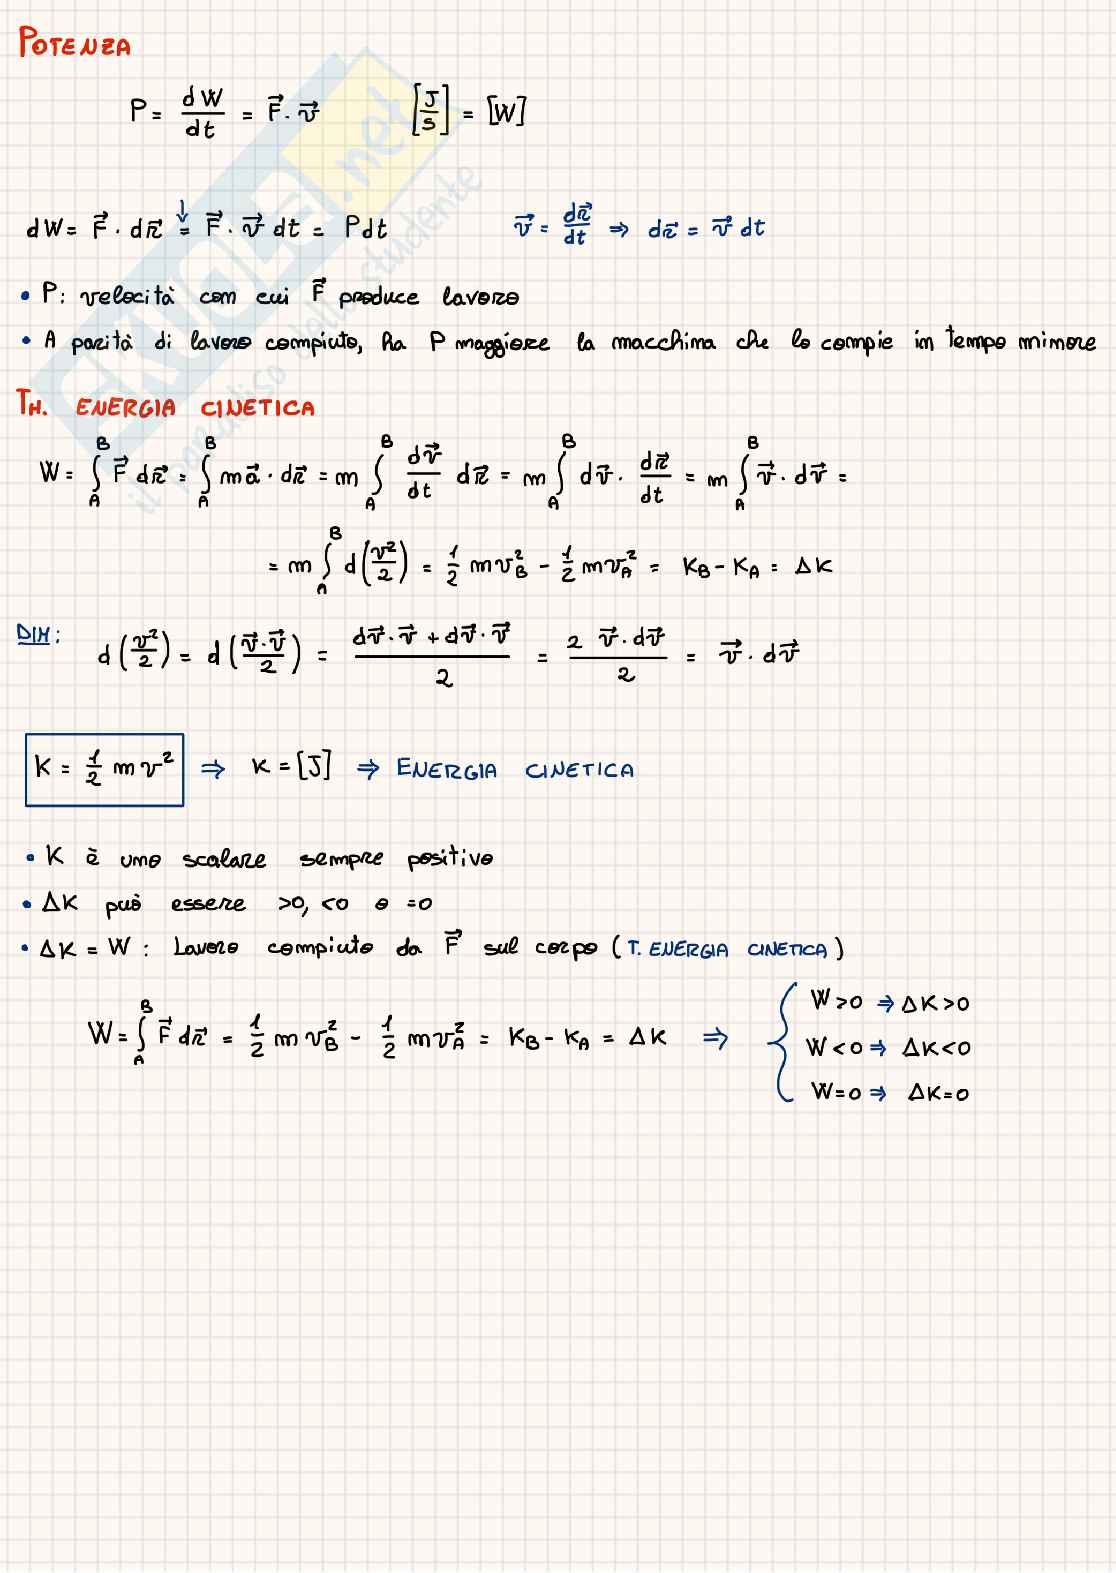 POTENZA
P = dW/dt = F⃗ · v⃗    [J/s] = [W]
dW = F⃗ · dr⃗ = F⃗ · v⃗ dt = Pdt    v⃗ = dr⃗/dt ⇒ dr⃗ = v⃗ dt
• P: velocità con cui F⃗ produce lavoro
• A parità di lavoro compiuto, ha P maggiore la macchina che lo compie in tempo minore
TH. ENERGIA CINETICA
W = ∫_A^B F⃗ dr⃗ = ∫_A^B m a⃗ · dr⃗ = m ∫_A^B dv⃗/dt dr⃗ = m ∫_A^B dv⃗ · dr⃗/dt = m ∫_A^B v⃗ · dv⃗ =
= m ∫_A^B d(v²/2) = 1/2 m v_B² - 1/2 m v_A² = K_B - K_A = ΔK
DIM: d(v²/2) = d(v⃗·v⃗/2) = (dv⃗·v⃗ + dv⃗·v⃗)/2 = 2 v⃗·dv⃗/2 = v⃗ · dv⃗
K = 1/2 m v² ⇒ K = [J] ⇒ ENERGIA CINETICA
• K è uno scalare sempre positivo
• ΔK può essere >0, <0 o =0
• ΔK = W : Lavoro compiuto da F⃗ sul corpo (T. ENERGIA CINETICA)
W = ∫_A^B F⃗ dr⃗ = 1/2 m v_B² - 1/2 m v_A² = K_B - K_A = ΔK ⇒ { W>0 ⇒ ΔK>0
W<0 ⇒ ΔK<0
W=0 ⇒ ΔK=0
SKUOLA.net
il paradiso dello studente